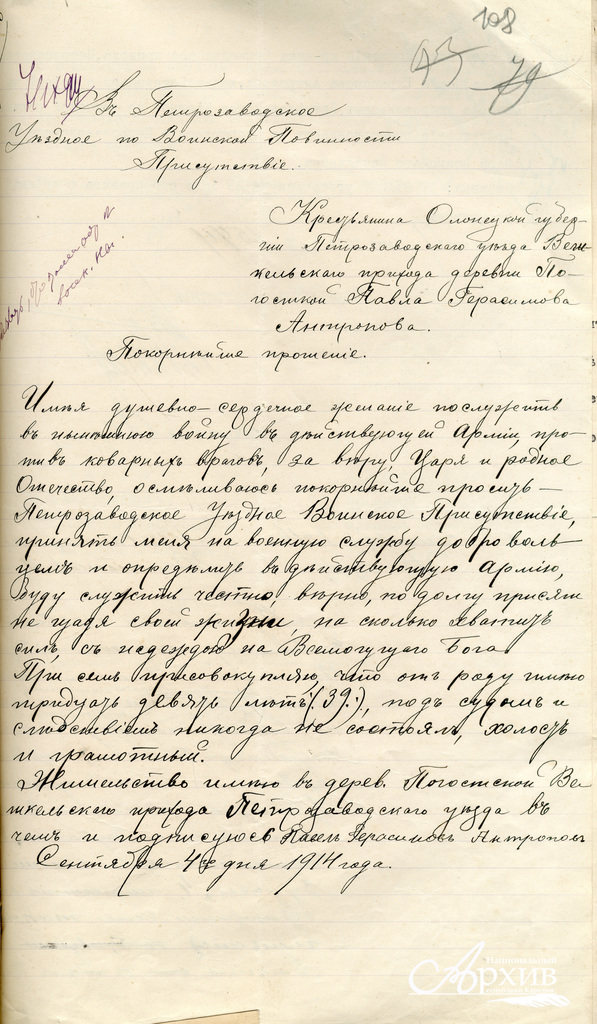 108
93 79
Въ Петрозаводское
Уѣздное по Воинской Повинности
Присутствіе.
Крестьянина Олонецкой губер-
ніи Петрозаводскаго уѣзда Веш-
кельскаго прихода деревни По-
гостской Павла Герасимова
Антропова.
Покорнѣйше прошеніе.
Имѣя душевно-сердечное желаніе послужить
въ нынѣшнюю войну въ дѣйствующей Арміи, про-
тивъ коварныхъ враговъ, за вѣру, Царя и родное
Отечество, осмѣливаюсь покорнѣйше просить —
Петрозаводское Уѣздное Воинское Присутствіе,
принять меня на военную службу доброволь-
цемъ и опредѣлить въ дѣйствующую Армію,
буду служить честно, вѣрно, по долгу присяги
не щадя своей жизни, на сколько хватитъ
силъ, съ надеждой на Всемогущаго Бога.
При семъ присовокупляю, что отъ роду имѣю
тридцать девять лѣтъ (39.), подъ судомъ и
слѣдствіемъ никогда не состоялъ, холостъ
и грамотный.
Жительство имѣю въ дерев. Погостской Ве-
шкельскаго прихода Петрозаводскаго уѣзда въ
чемъ и подписуюсь Павелъ Герасимовъ Антроповъ
Сентября 4го дня 1914 года.
Национальный
Архив